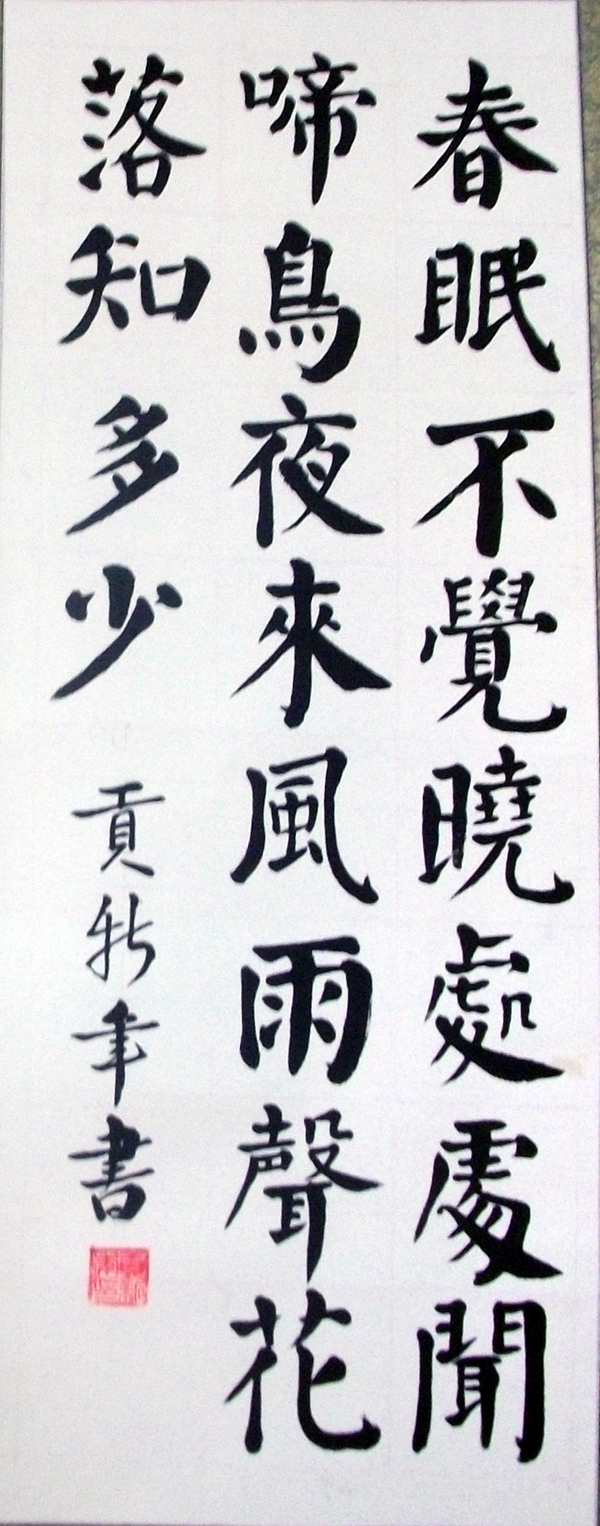 春眠不覺曉處處聞
啼鳥夜來風雨聲花
落知多少
貢新年書